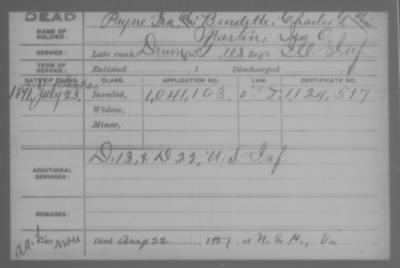 DEAD
NAME OF SOLDIER: Payne Ira alias Burdette, Charles T. alias
Martin, Ira C.
SERVICE: Late rank, Drummer 103 Reg't Ill Inf
TERM OF SERVICE: Enlisted , 1 Discharged , 1
DATE OF FILING. CLASS. APPLICATION NO. LAW. CERTIFICATE NO.
1891, July 23 Invalid, 1,041,103 1,124,517
Widow,
Minor,
ADDITIONAL SERVICES: D. 13, & D 22, U.S. Inf
REMARKS:
Died Aug 22 , 1927, at N. S. H., Va